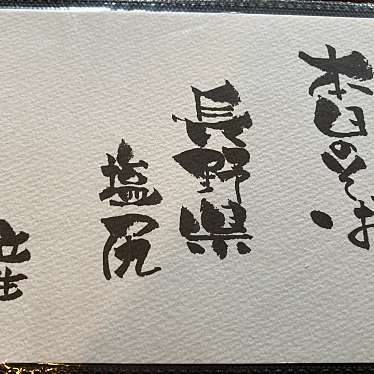 本日のそば・
長野県
塩尻
産